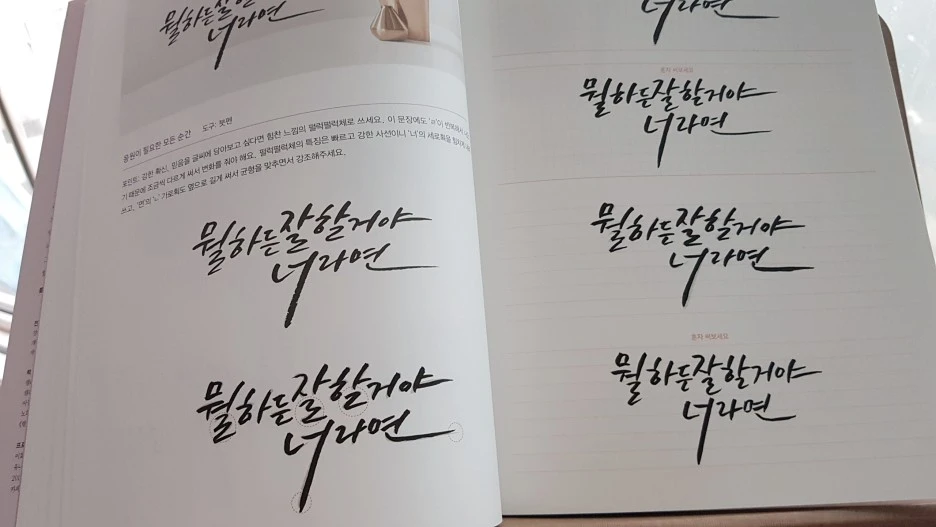 뭘하든잘할거야
너라면
응원이 필요한 모든 순간 도구: 붓펜
포인트: 강한 확신, 믿음을 글씨에 담아보고 싶다면 힘찬 느낌의 펄럭펄럭체로 쓰세요. 이 문장에도 'ㄹ'이 반복해서
기 때문에 조금씩 다르게 써서 변화를 줘야 해요. 펄럭펄럭체의 특징은 빠르고 강한 사선이니 '너'의 세로획을 힘차게
쓰고, '면'의 'ㄴ' 가로획도 옆으로 길게 써서 균형을 맞추면서 강조해주세요.
뭘하든잘할거야
너라면
뭘하든잘할거야
너라면
너라면
혼자 써보세요
뭘하든잘할거야
너라면
뭘하든잘할거야
너라면
혼자 써보세요
뭘하든잘할거야
너라면